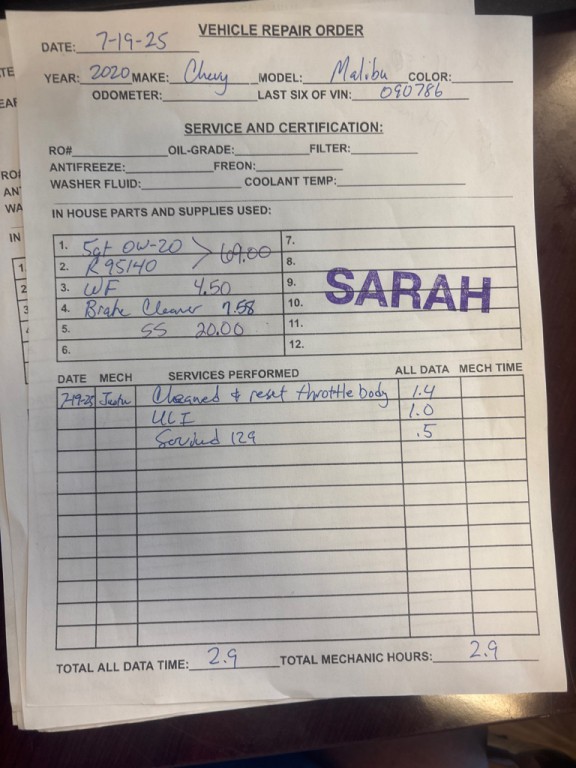 VEHICLE REPAIR ORDER
DATE: 7-19-25
YEAR: 2020 MAKE: Chevy MODEL: Malibu COLOR:
ODOMETER: LAST SIX OF VIN: 090786
SERVICE AND CERTIFICATION:
RO# OIL-GRADE: FILTER:
ANTIFREEZE: FREON:
WASHER FLUID: COOLANT TEMP:
IN HOUSE PARTS AND SUPPLIES USED:
1. 5qt 0W-20 69.00 7.
2. R95140 8.
3. WF 4.50 9.
4. Brake Cleaner 7.58 10.
5. SS 20.00 11.
6. 12.
SARAH
DATE MECH SERVICES PERFORMED ALL DATA MECH TIME
7-19-25 Cleaned & reset throttle body 1.4
UCI 1.0
129 .5
TOTAL ALL DATA TIME: 2.9 TOTAL MECHANIC HOURS: 2.9